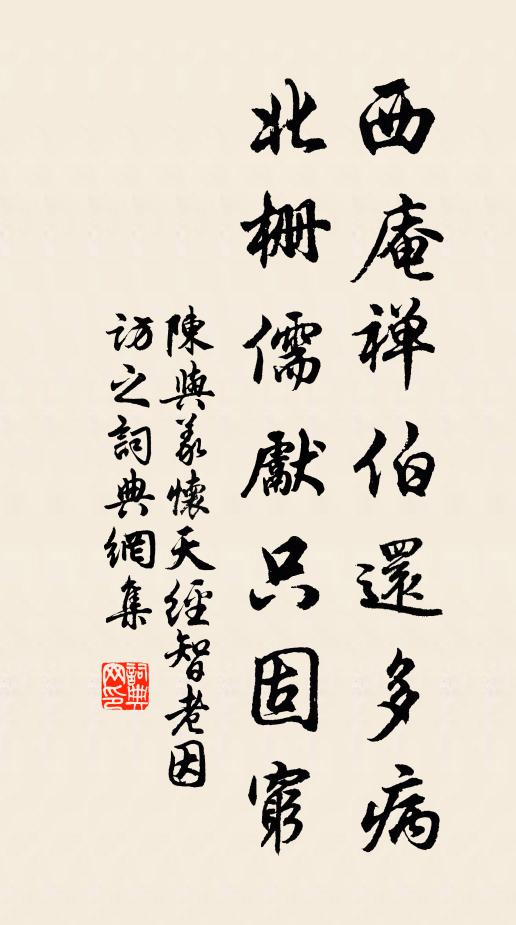 西庵禅伯還多病
北柵儒獻只固窮
陳與義懷天經智老因
訪之詞典網集
詞典
网印